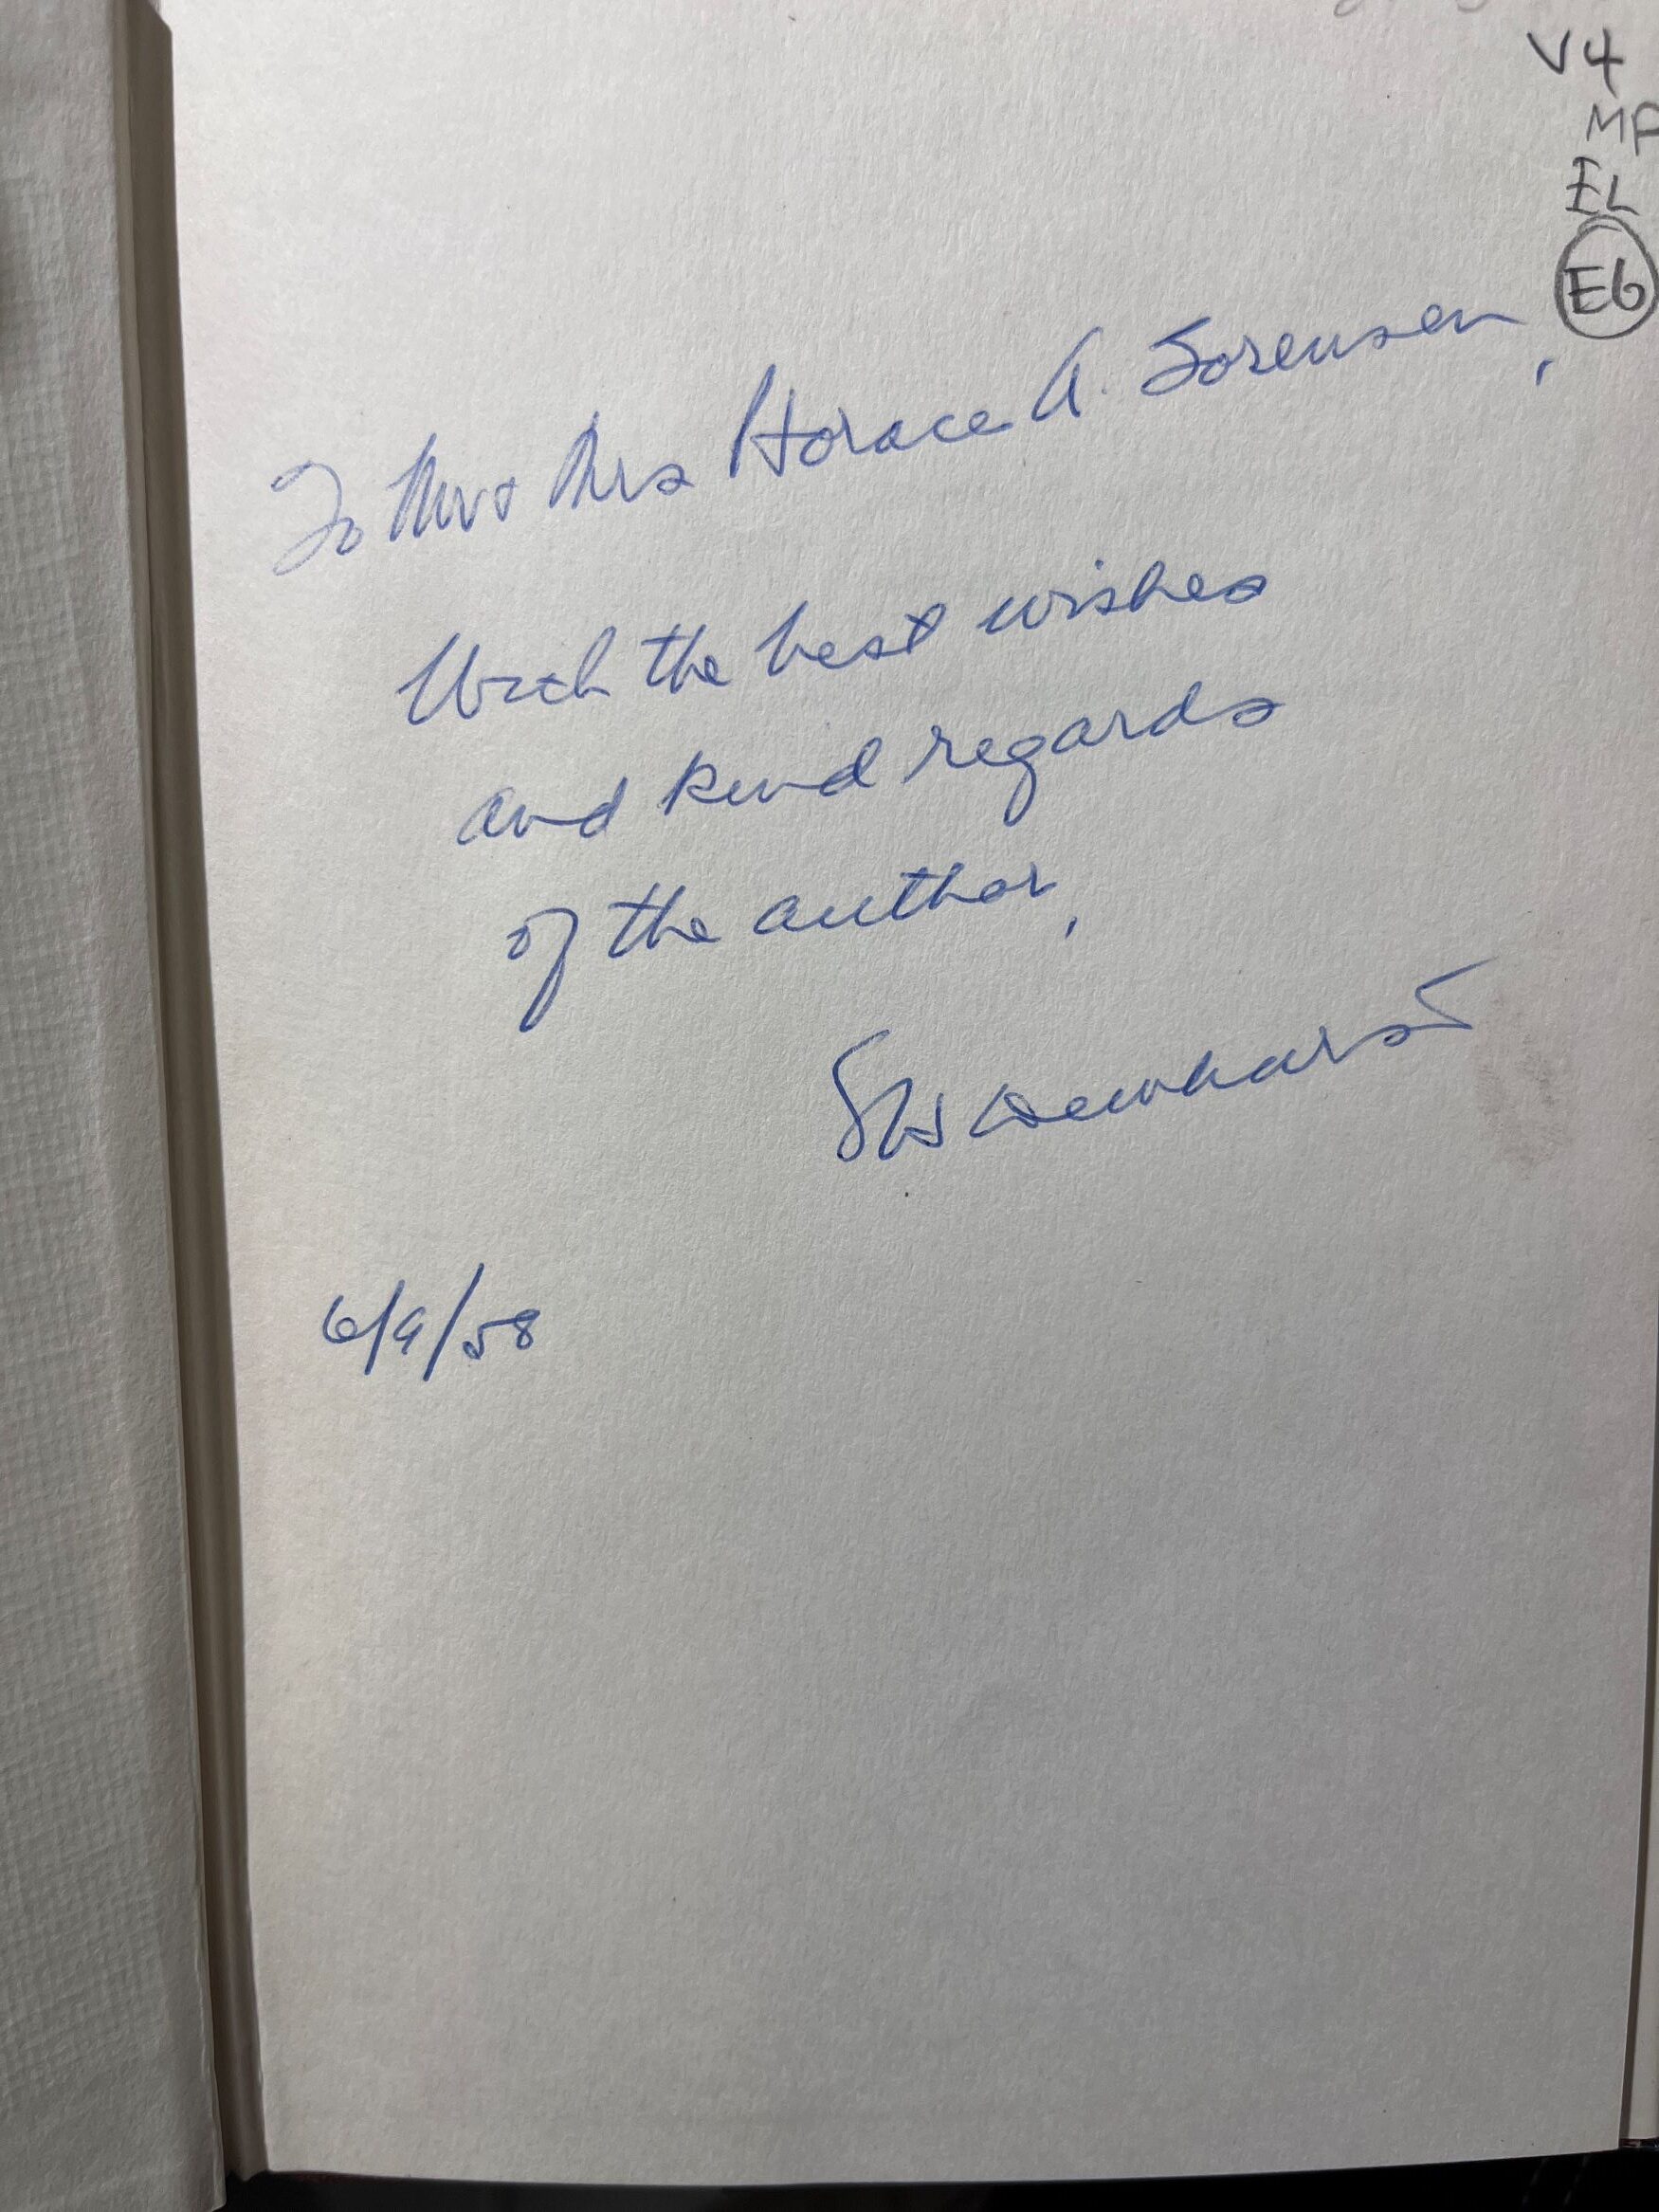 V4
EL
E6
To Mr + Mrs Horace A. Sorensen,
With the best wishes
and kind regards
of the author,
6/9/58